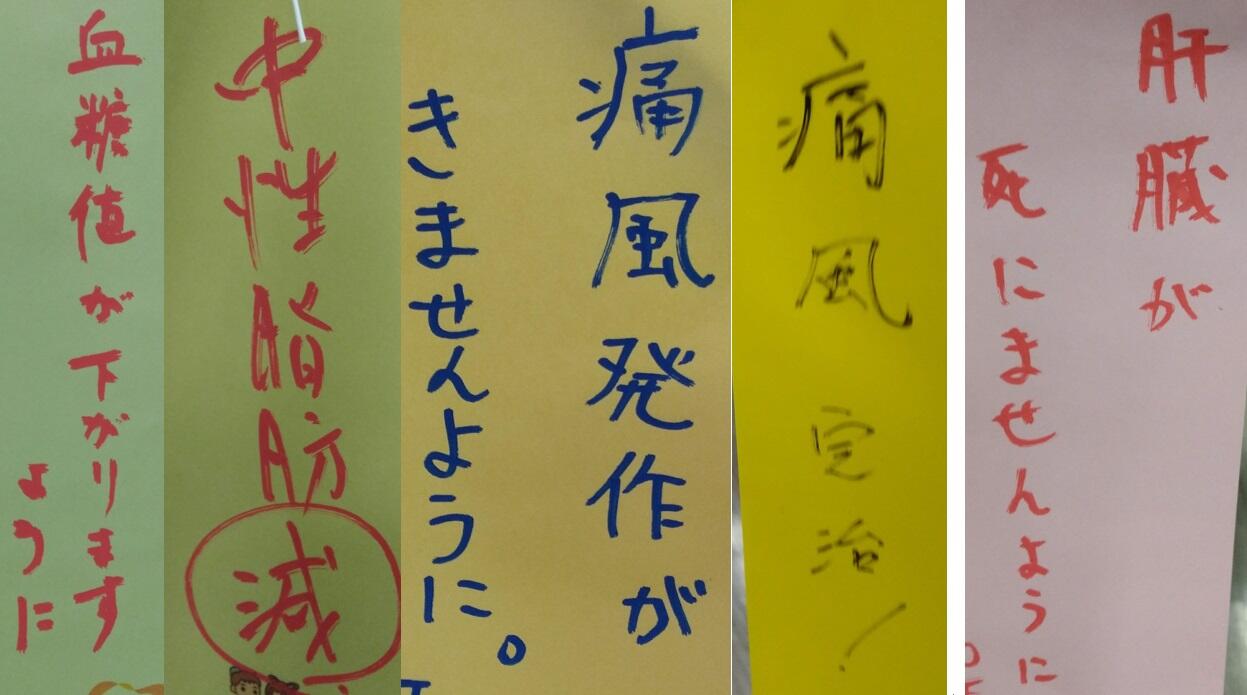 血糖値が下がります
ように
中性脂肪減
痛風発作が
きませんように。
痛風完治!
肝臓が
死にませんように